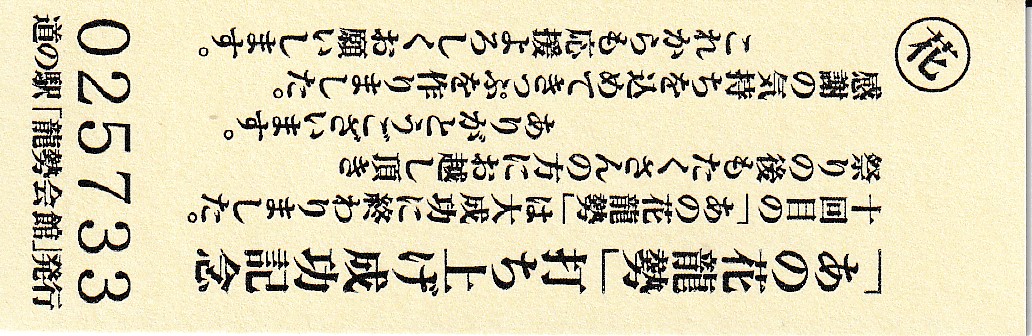 「あの花龍勢」打ち上げ成功記念
十回目の「あの花龍勢」は大成功に終わりました。
祭りの後もたくさんの方にお越し頂き
ありがとうございます。
感謝の気持ちを込めてきっぷを作りました。
これからも応援よろしくお願いします。
花
025733
道の駅「龍勢会館」発行